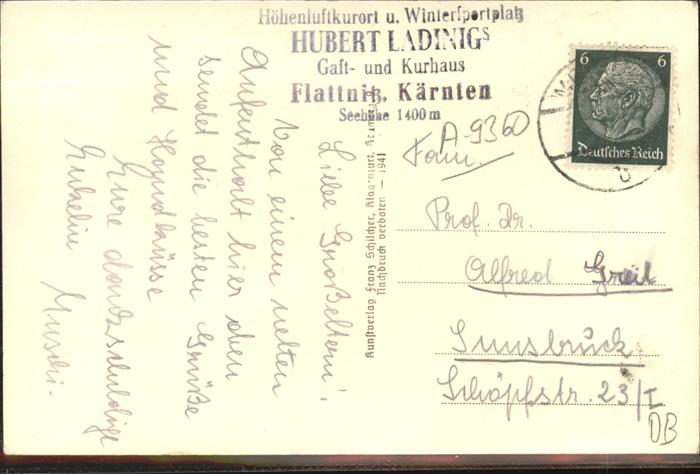 Höhenluftkurort u. Wintersportplatz
HUBERT LADINIGS
Gast- und Kurhaus
Flattnitz, Kärnten
Seehöhe 1400 m
6 6
Deutsches Reich
A-9360
Fam.
Prof. Dr.
Alfred Greil
Innsbruck
Schöpfstr. 23/I
DB
Kunstverlag Franz Schilcher, Klagenfurt,
Nachdruck verboten — 1941
Liebe Großeltern!
Von einem netten
Aufenthalt hier oben
sendet die besten Grüße
und Handküsse
Eure dankschuldige
Enkelin